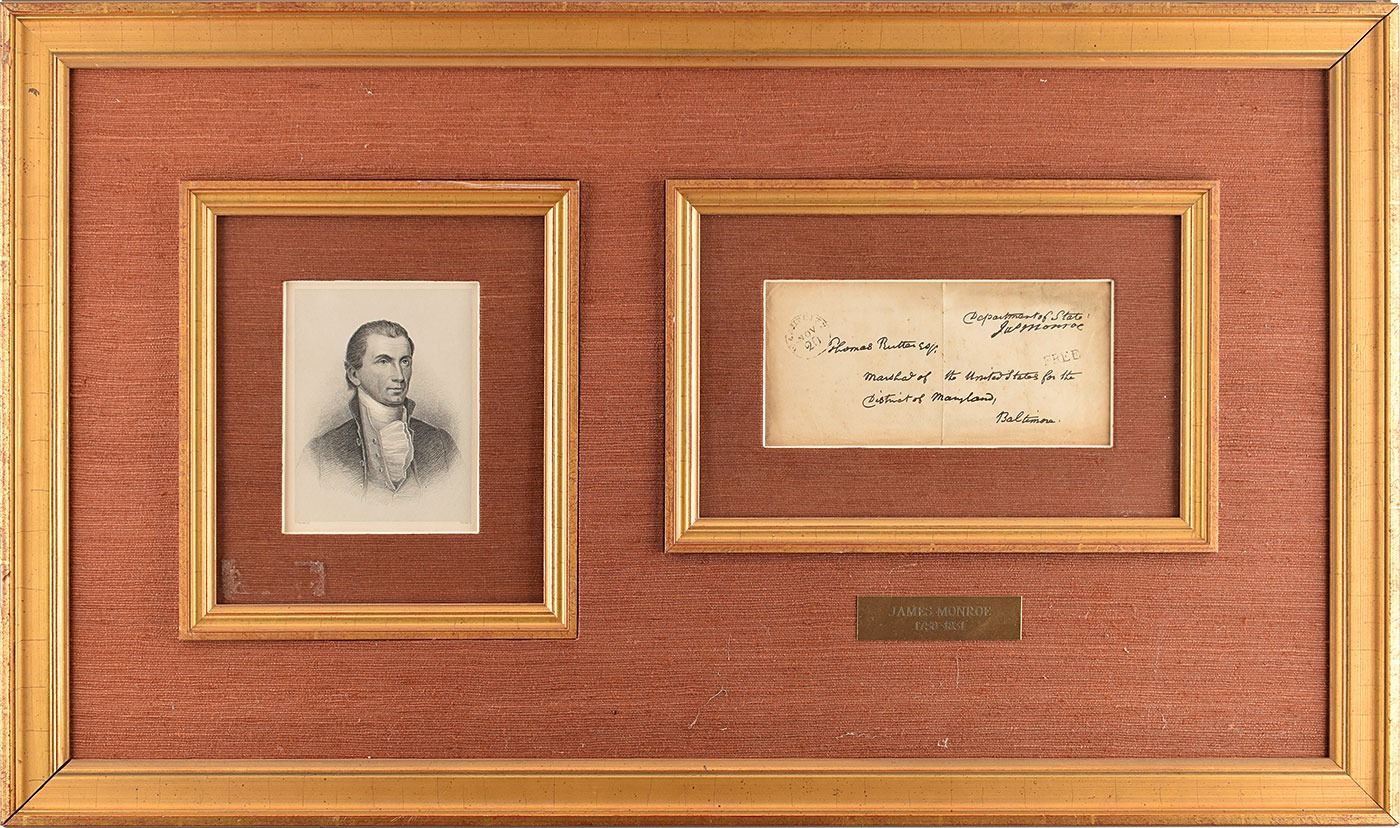 Department of State.
Jas Monroe
NOV
20
FREE
Thomas Rutter esq.
Marshal of the United States for the
District of Maryland,
Baltimore.
JAMES MONROE